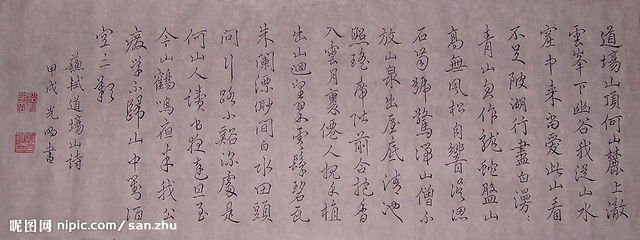 道場山頂何山麓上澈
雲峯下幽谷我從山水
窟中來尚愛此山看
不足陂湖行盡白漫〻
青山忽作龍蛇盤山
高無風松自響誤認
石齒號驚湍山僧不
放山泉出屋底清池
照瑤席階前合抱香
入雲月裏僊人親手植
出山迴望翠雲鬟碧瓦
朱闌縹緲間白水田頭
問行路小谿深處是
何山人讀書夜達旦至
今山鶴鳴夜半我今
廢學不歸山中對酒
空三歎
蘇軾道場山詩
甲戌光明書
昵图网 nipic.com/san.zhu